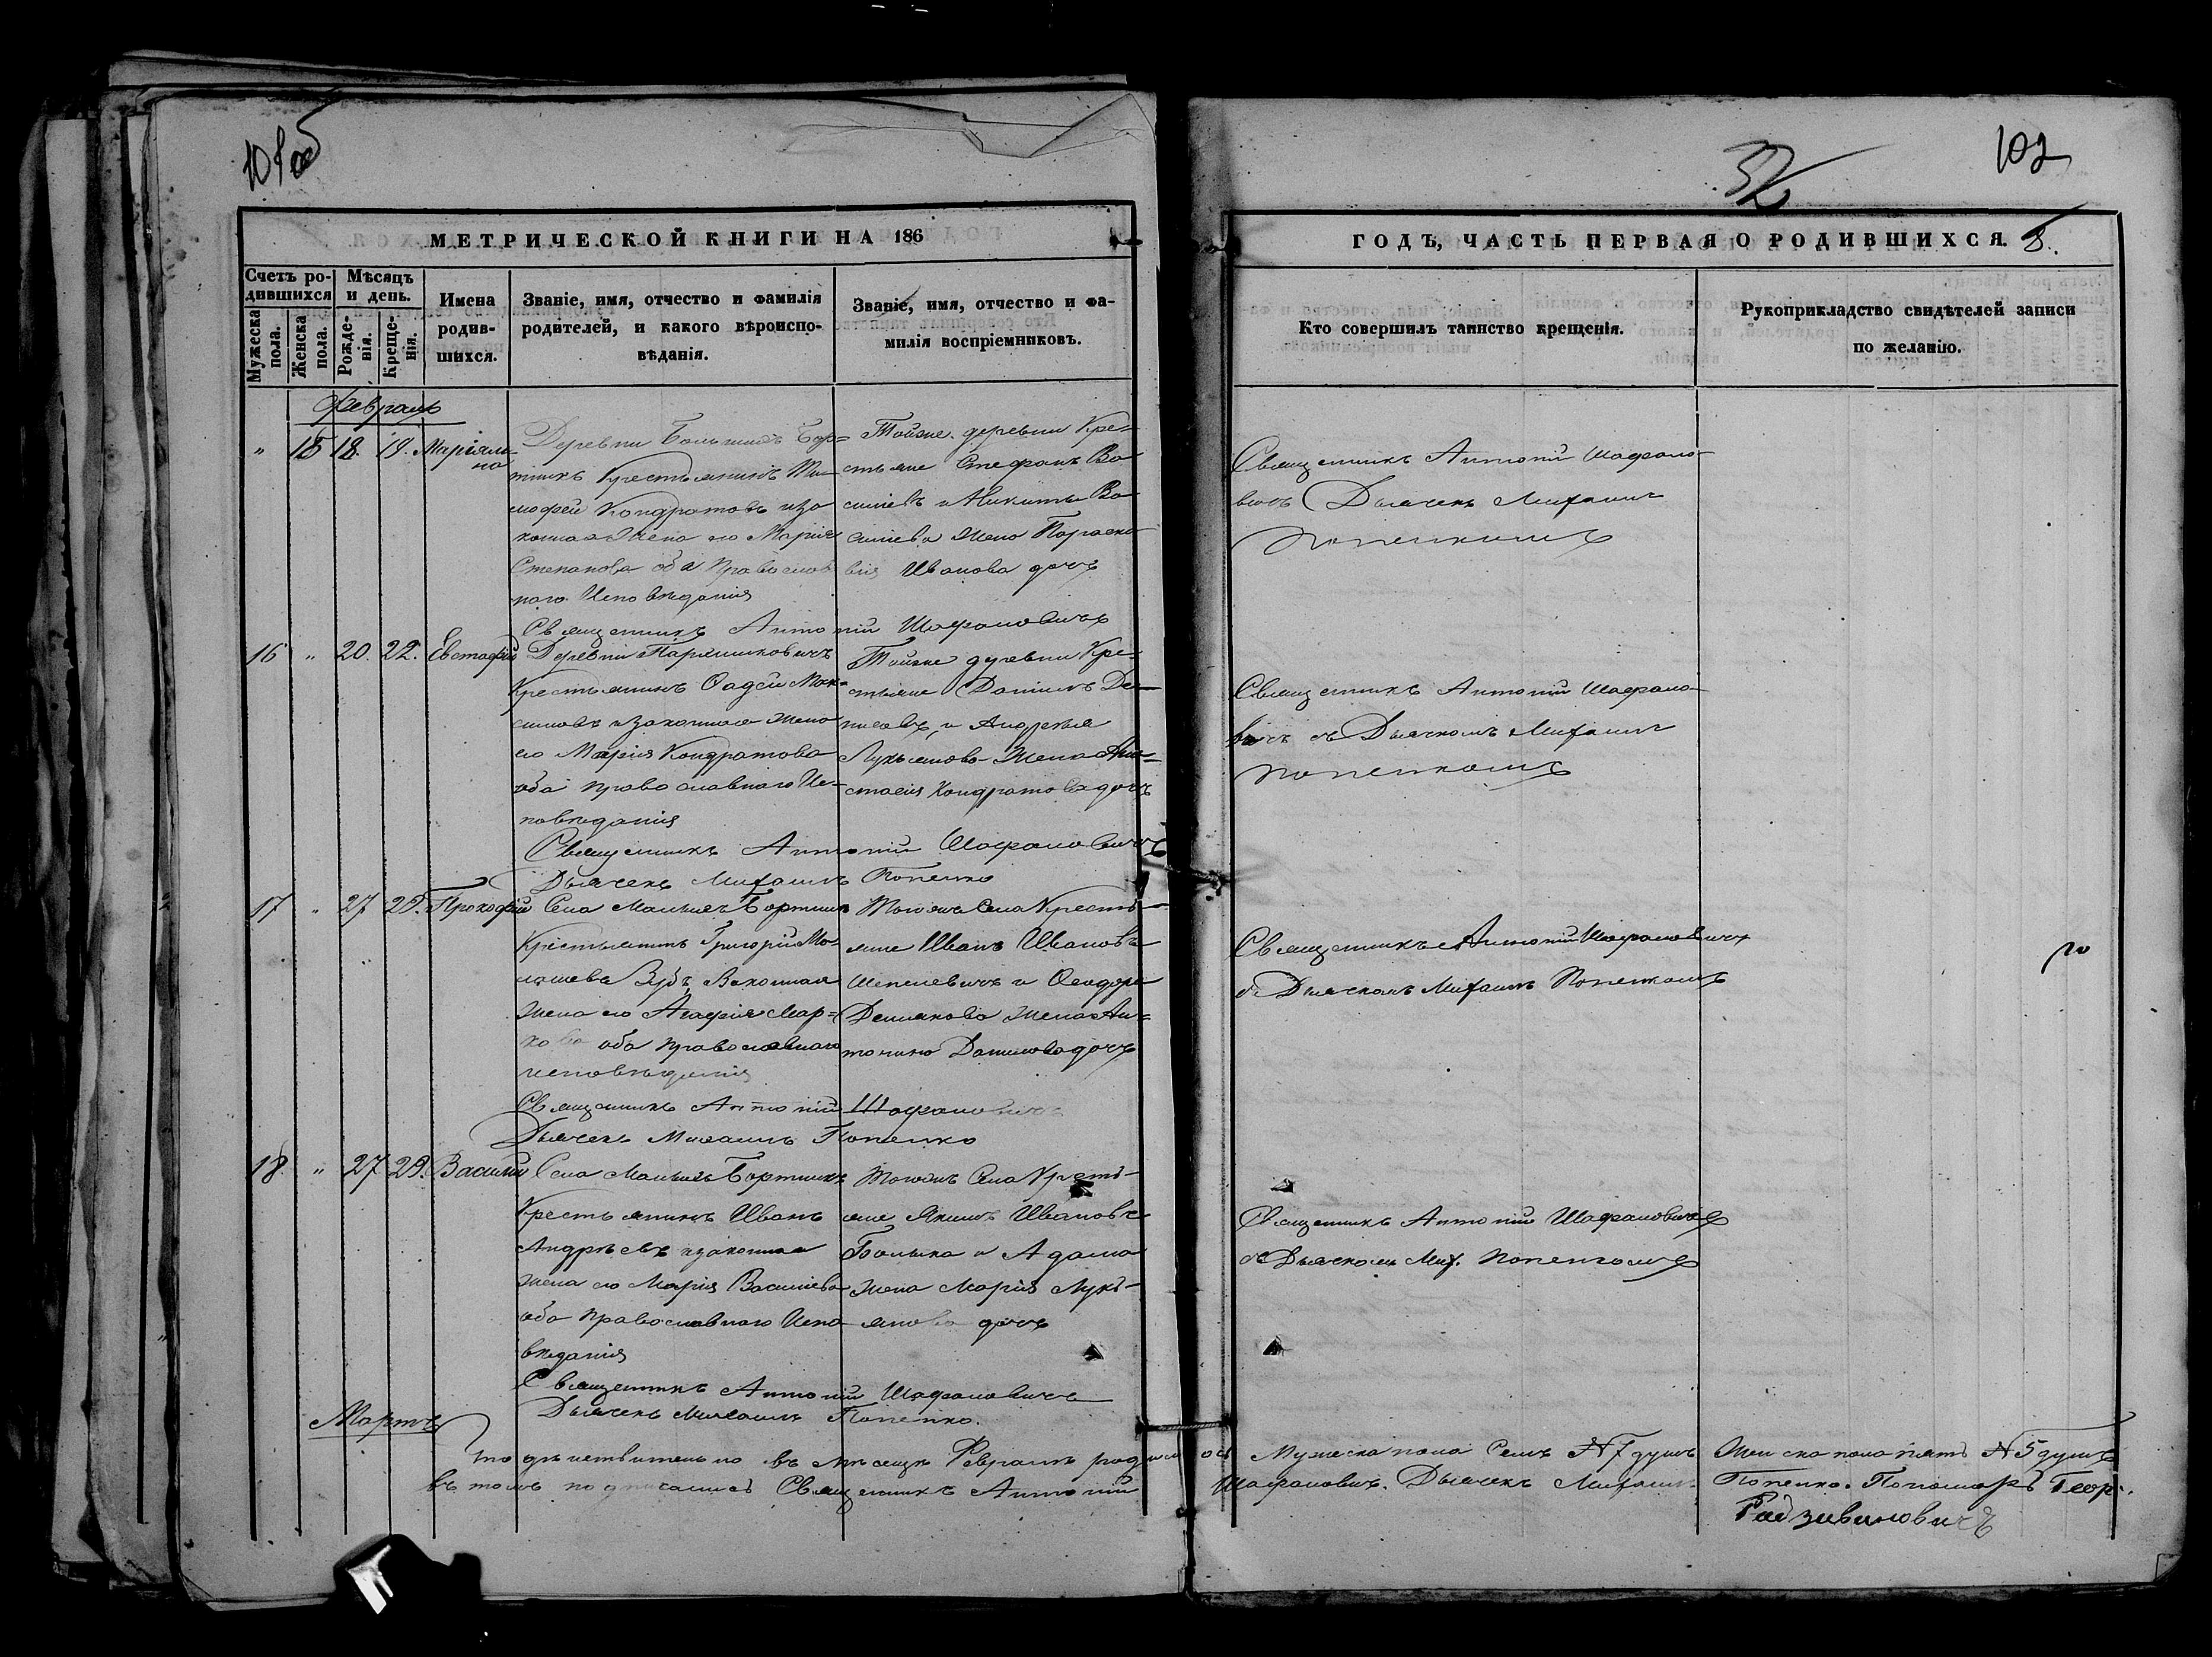 101об
102
МЕТРИЧЕСКОЙ КНИГИ НА 186
ГОДЪ, ЧАСТЬ ПЕРВАЯ О РОДИВШИХСЯ. 8.
Счетъ ро-
дившихся
Мѣсяцъ
и день.
Мужеска
пола.
Женска
пола.
Рожде-
нія.
Креще-
нія.
Имена
родив-
шихся.
Званіе, имя, отчество и фамилія
родителей, и какого вѣроиспо-
вѣданія.
Званіе, имя, отчество и фа-
милія воспріемниковъ.
Кто совершилъ таинство крещенія.
Рукоприкладство свидѣтелей записи
по желанію.
Февраль
" 18. 19.
Деревни Большихъ Бор=
тникъ Крестьянинъ Ти-
мофей Кондратовъ иза
конная Жена его Марія
Степанова оба Православ
наго Исповѣданія
Тойже деревни Кре=
стьяне Стефанъ Ва
силіевъ и Никиты Ва
силіева Жена Параске
вія Иванова дочь
Священникъ Антоній Шафано-
вичъ Дьячекъ Михаилъ
Попенкомъ
Священникъ Антоній Шафановичъ
16 " 20. 22. Евстафій
Деревни
Крестьянинъ Фадей Мак=
симовъ и законная жена
его Марія Кондратова
оба православнаго Ис-
повѣданія
Тойже деревни Кре-
стьяне Даніилъ Де-
нисовъ, и Андрея
Лукьянова Жена Ана=
стасія Кондратова дочь
Священникъ Антоній Шафано-
вичъ съ Дьячкомъ Михаилъ
Попенкомъ
Священникъ Антоній Шафановичъ
Дьячекъ Михаилъ Попенко
17 " 27 29. Прокофій
Села Малыхъ Бортникъ
Крестьянинъ Григорій
Законная
Жена его Агафія Мар=
кова оба православнаго
исповѣданія
Тогожъ Села Кресть-
яне Иванъ Ивановъ
Шепелевичъ и Феодора
Демянова Жена Ан=
тонина Данилова дочь
Священникъ Антоній Шафановичъ
съ Дьячкомъ Михаилъ Попенкомъ
Священникъ Антоній Шафановичъ
Дьячекъ Михаилъ Попенко
18. " 27 29. Василій
Села Малыхъ Бортникъ
Крестьянинъ Иванъ
Андреевъ изаконная
жена его Марія Василіева
оба Православнаго Испо
вѣданія
Тогожъ Села Кресть-
яне Якимъ Ивановъ
и Адама
Жена Марія Лукь-
янова дочь
Священникъ Антоній Шафановичъ
съ Дьячкомъ Мих. Попенкомъ
Священникъ Антоній Шафановичъ
Дьячекъ Михаилъ Попенко.
Мартъ
Что дѣйствительно въ мѣсяцѣ Февралѣ родилось Мужеска пола Семь № 7 душъ Женска пола пять № 5 душъ
въ томъ подписались Священникъ Антоній Шафановичъ. Дьячекъ Михаилъ Попенко. Пономарь Геор.
Радзивиновичъ